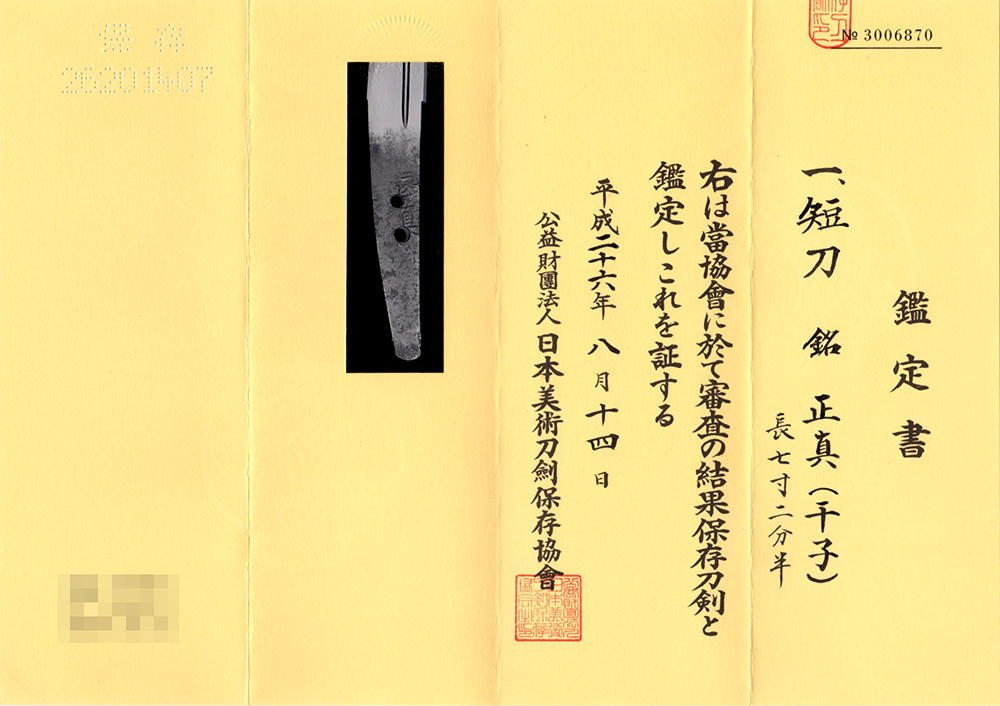 № 3006870
鑑定書
一、短刀 銘 正真(千子)
長七寸二分半
右は當協會に於て審査の結果保存刀剣と
鑑定しこれを証する
平成二十六年八月十四日
公益財團法人日本美術刀劍保存協會
保存
26201407